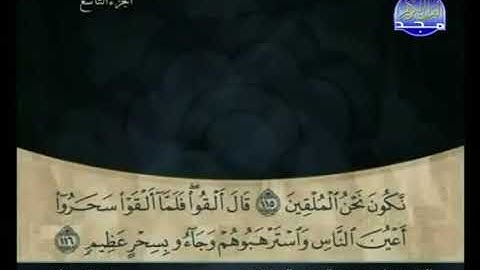 الجزء التاسع
مجد
نَّكُونَ نَحْنُ ٱلْمُلْقِينَ ١١٥ قَالَ أَلْقُوا۟ ۖ فَلَمَّآ أَلْقَوْا۟ سَحَرُوٓا۟
أَعْيُنَ ٱلنَّاسِ وَٱسْتَرْهَبُوهُمْ وَجَآءُو بِسِحْرٍ عَظِيمٍ ١١٦